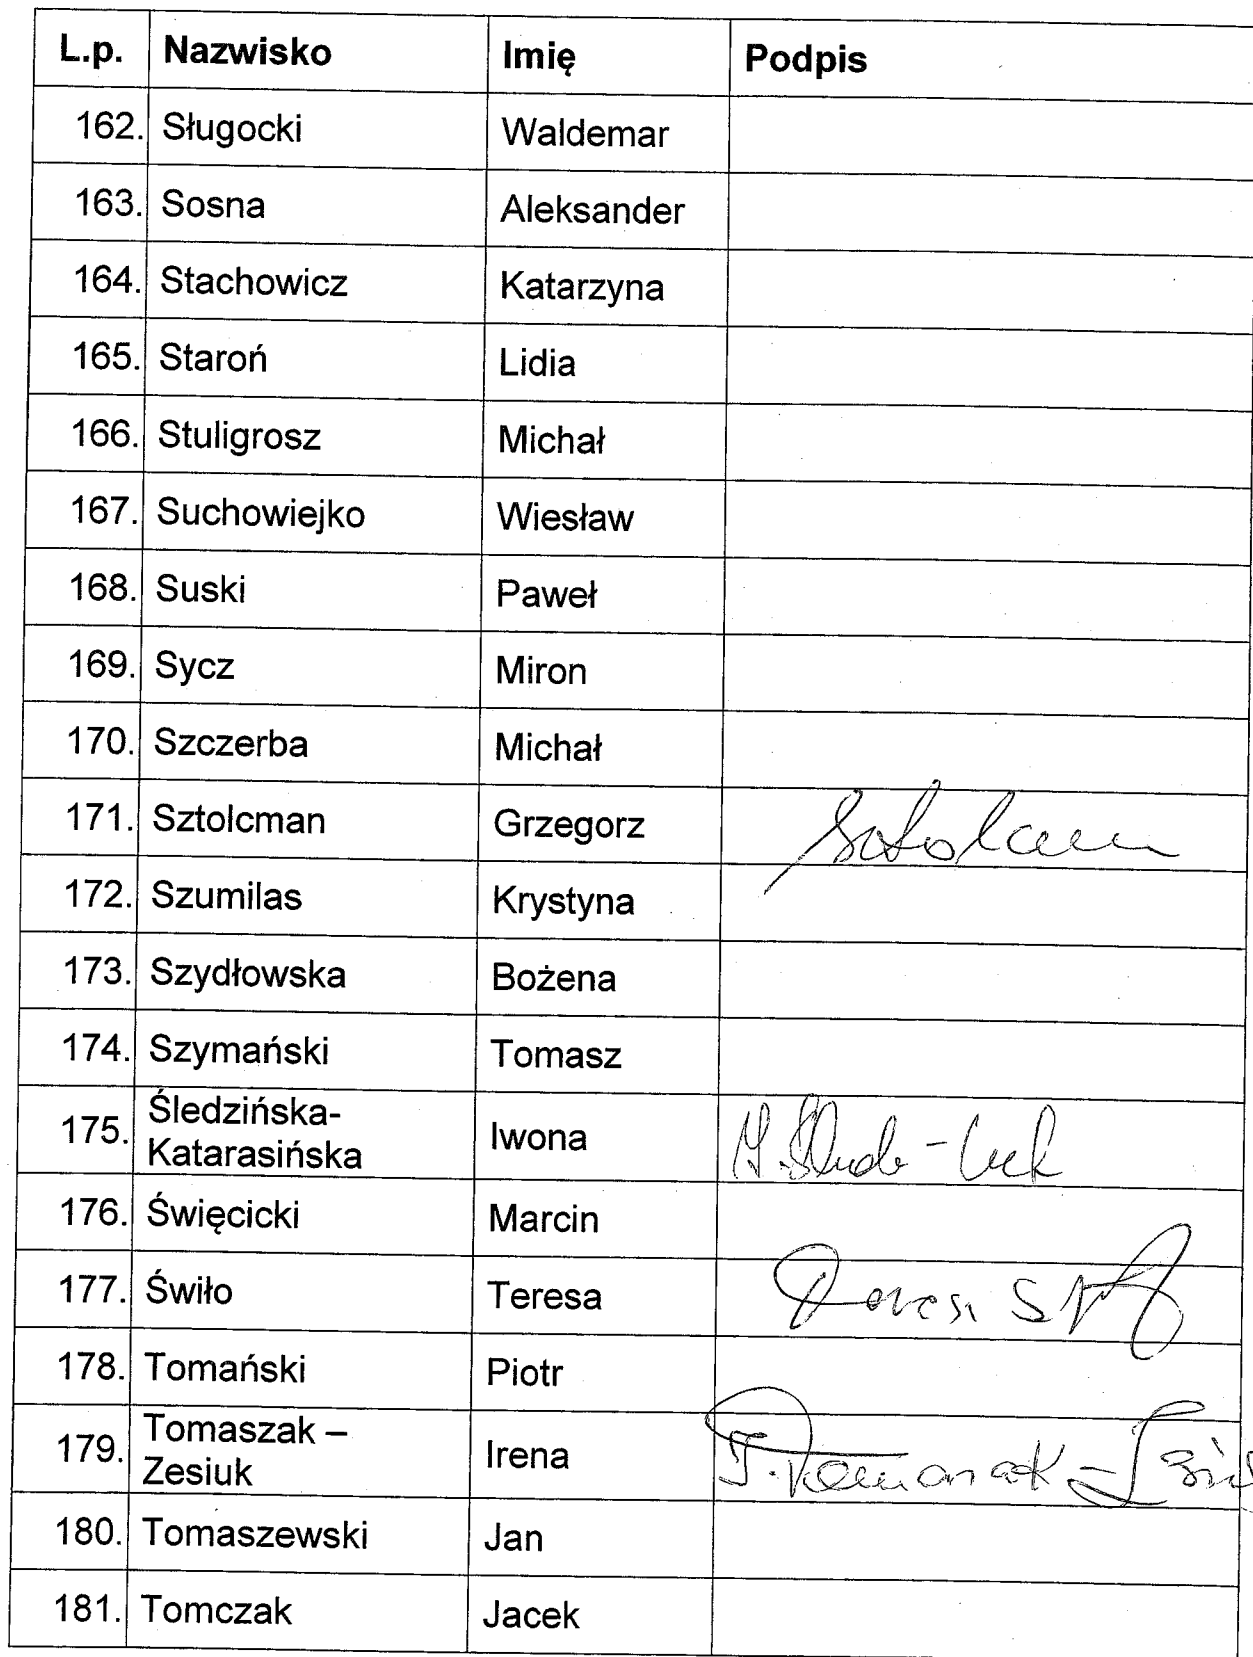 L.p. Nazwisko Imię Podpis
162. Sługocki Waldemar
163. Sosna Aleksander
164. Stachowicz Katarzyna
165. Staroń Lidia
166. Stuligrosz Michał
167. Suchowiejko Wiesław
168. Suski Paweł
169. Sycz Miron
170. Szczerba Michał
171. Sztolcman Grzegorz
172. Szumilas Krystyna
173. Szydłowska Bożena
174. Szymański Tomasz
175. Śledzińska-
Katarasińska Iwona
176. Święcicki Marcin
177. Świło Teresa
178. Tomański Piotr
179. Tomaszak –
Zesiuk Irena
180. Tomaszewski Jan
181. Tomczak Jacek